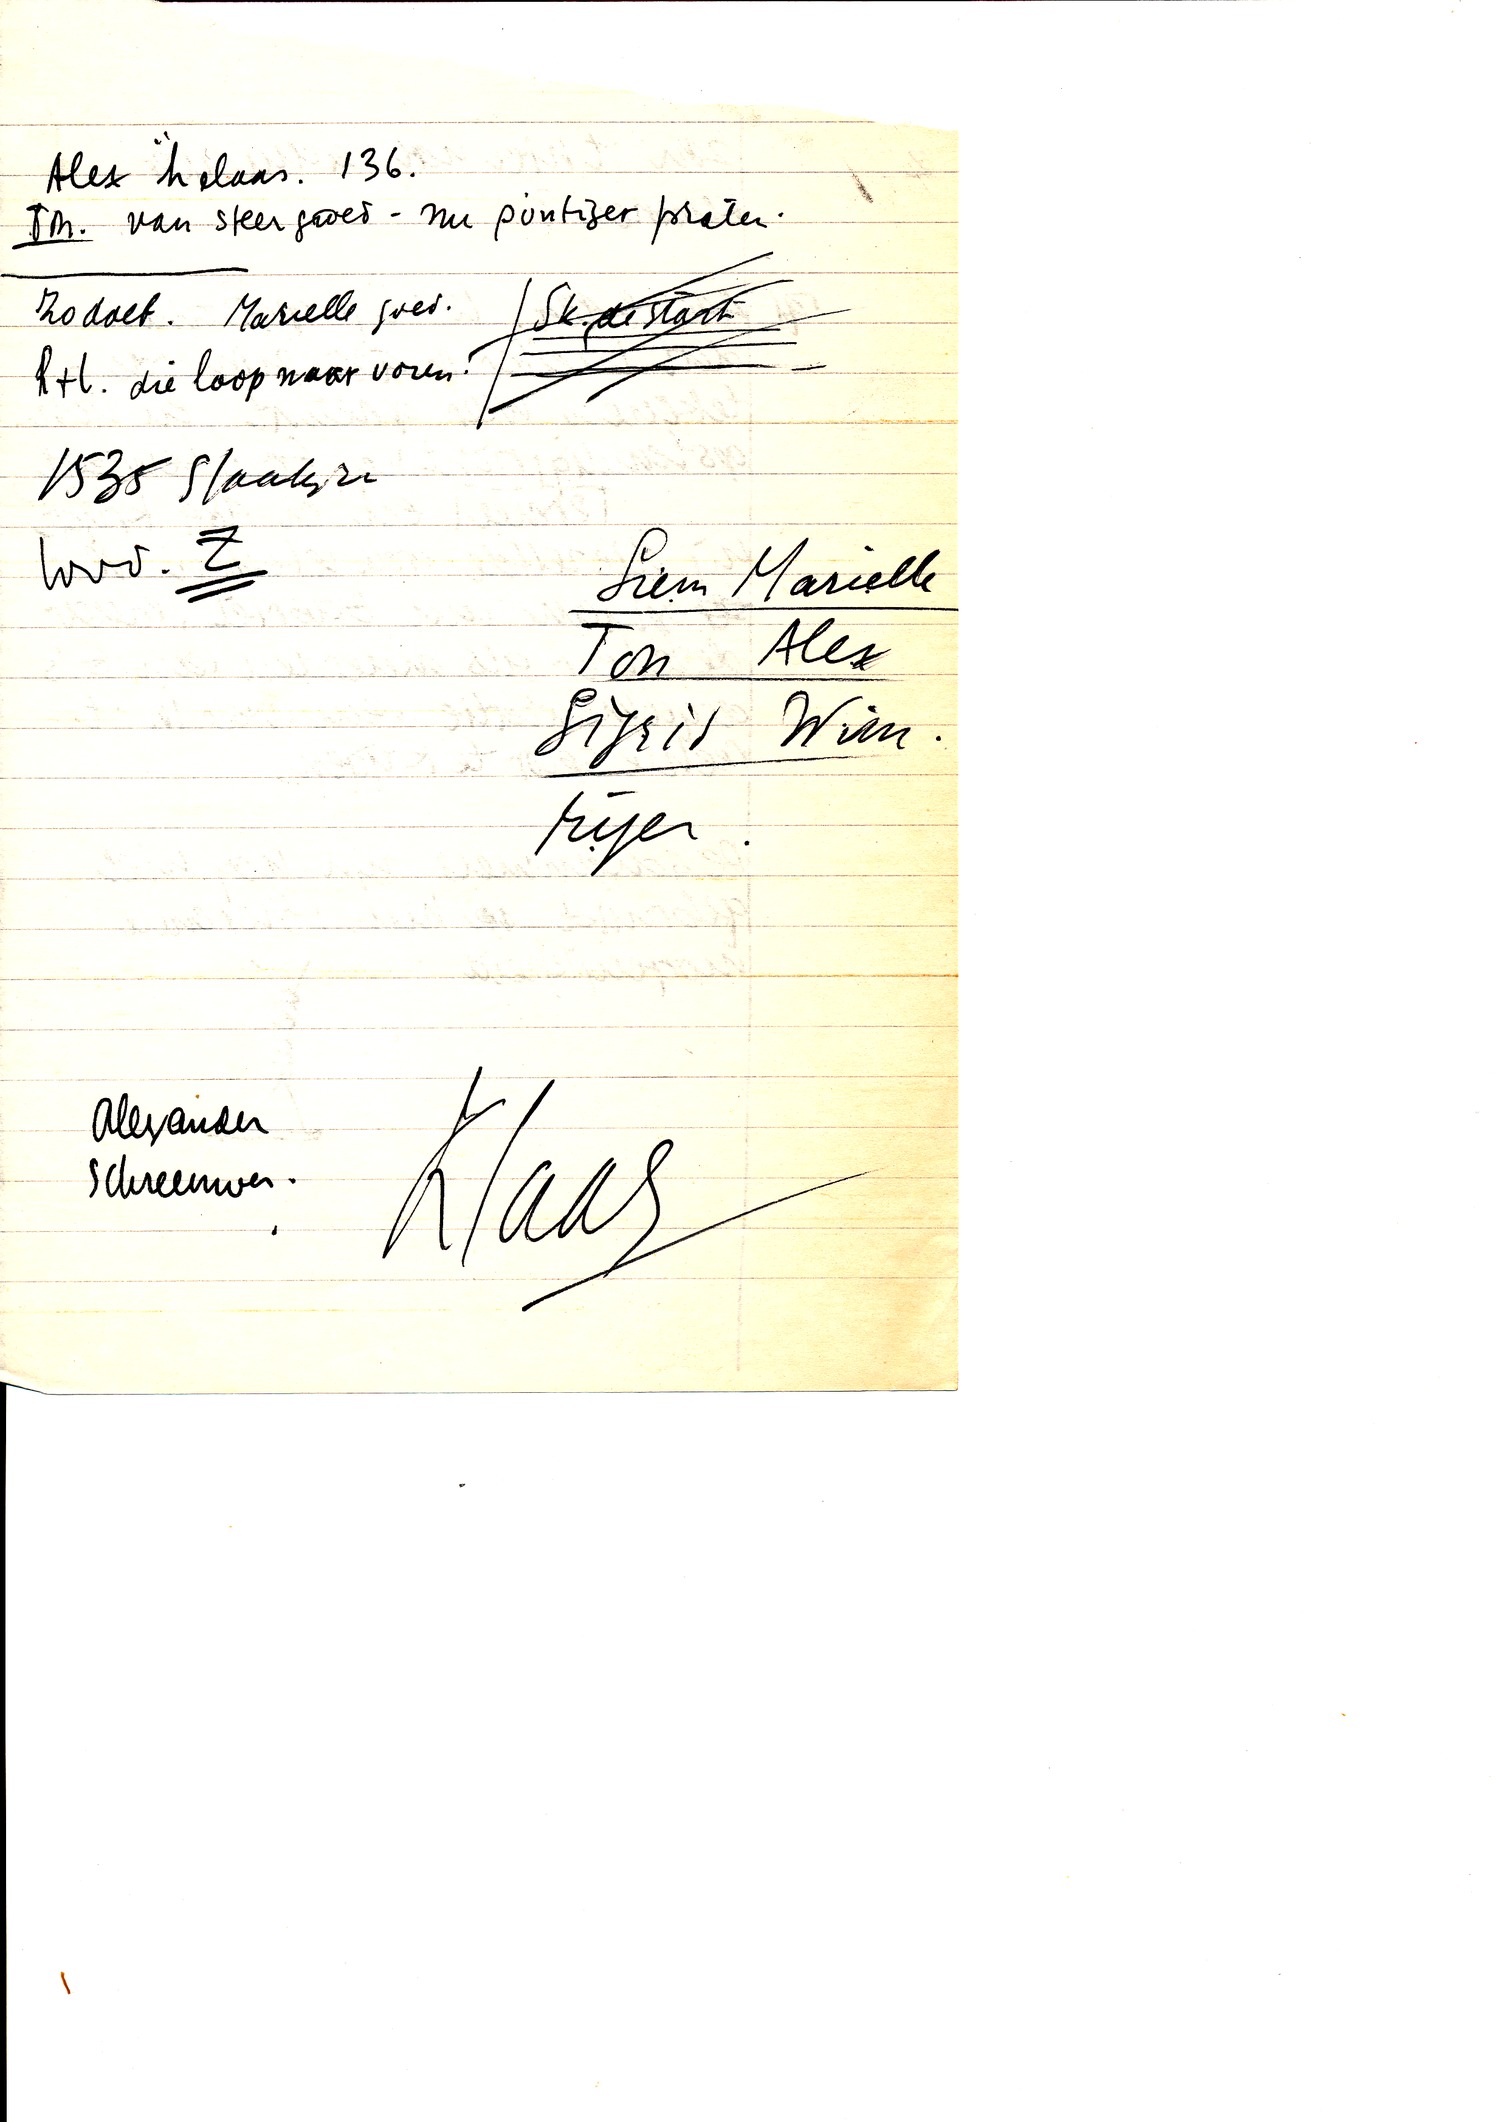 Alex "helaas. 136.
Tm. van sfeer goed - nu puntiger praten.
Zodoet. Marielle goed.
R+l. die loop naar voren!
Sk. de start
1535
Z
Siem Marielle
Ton Alex
Sigrid Wim.
Alexander
Schreemer.
Klaas